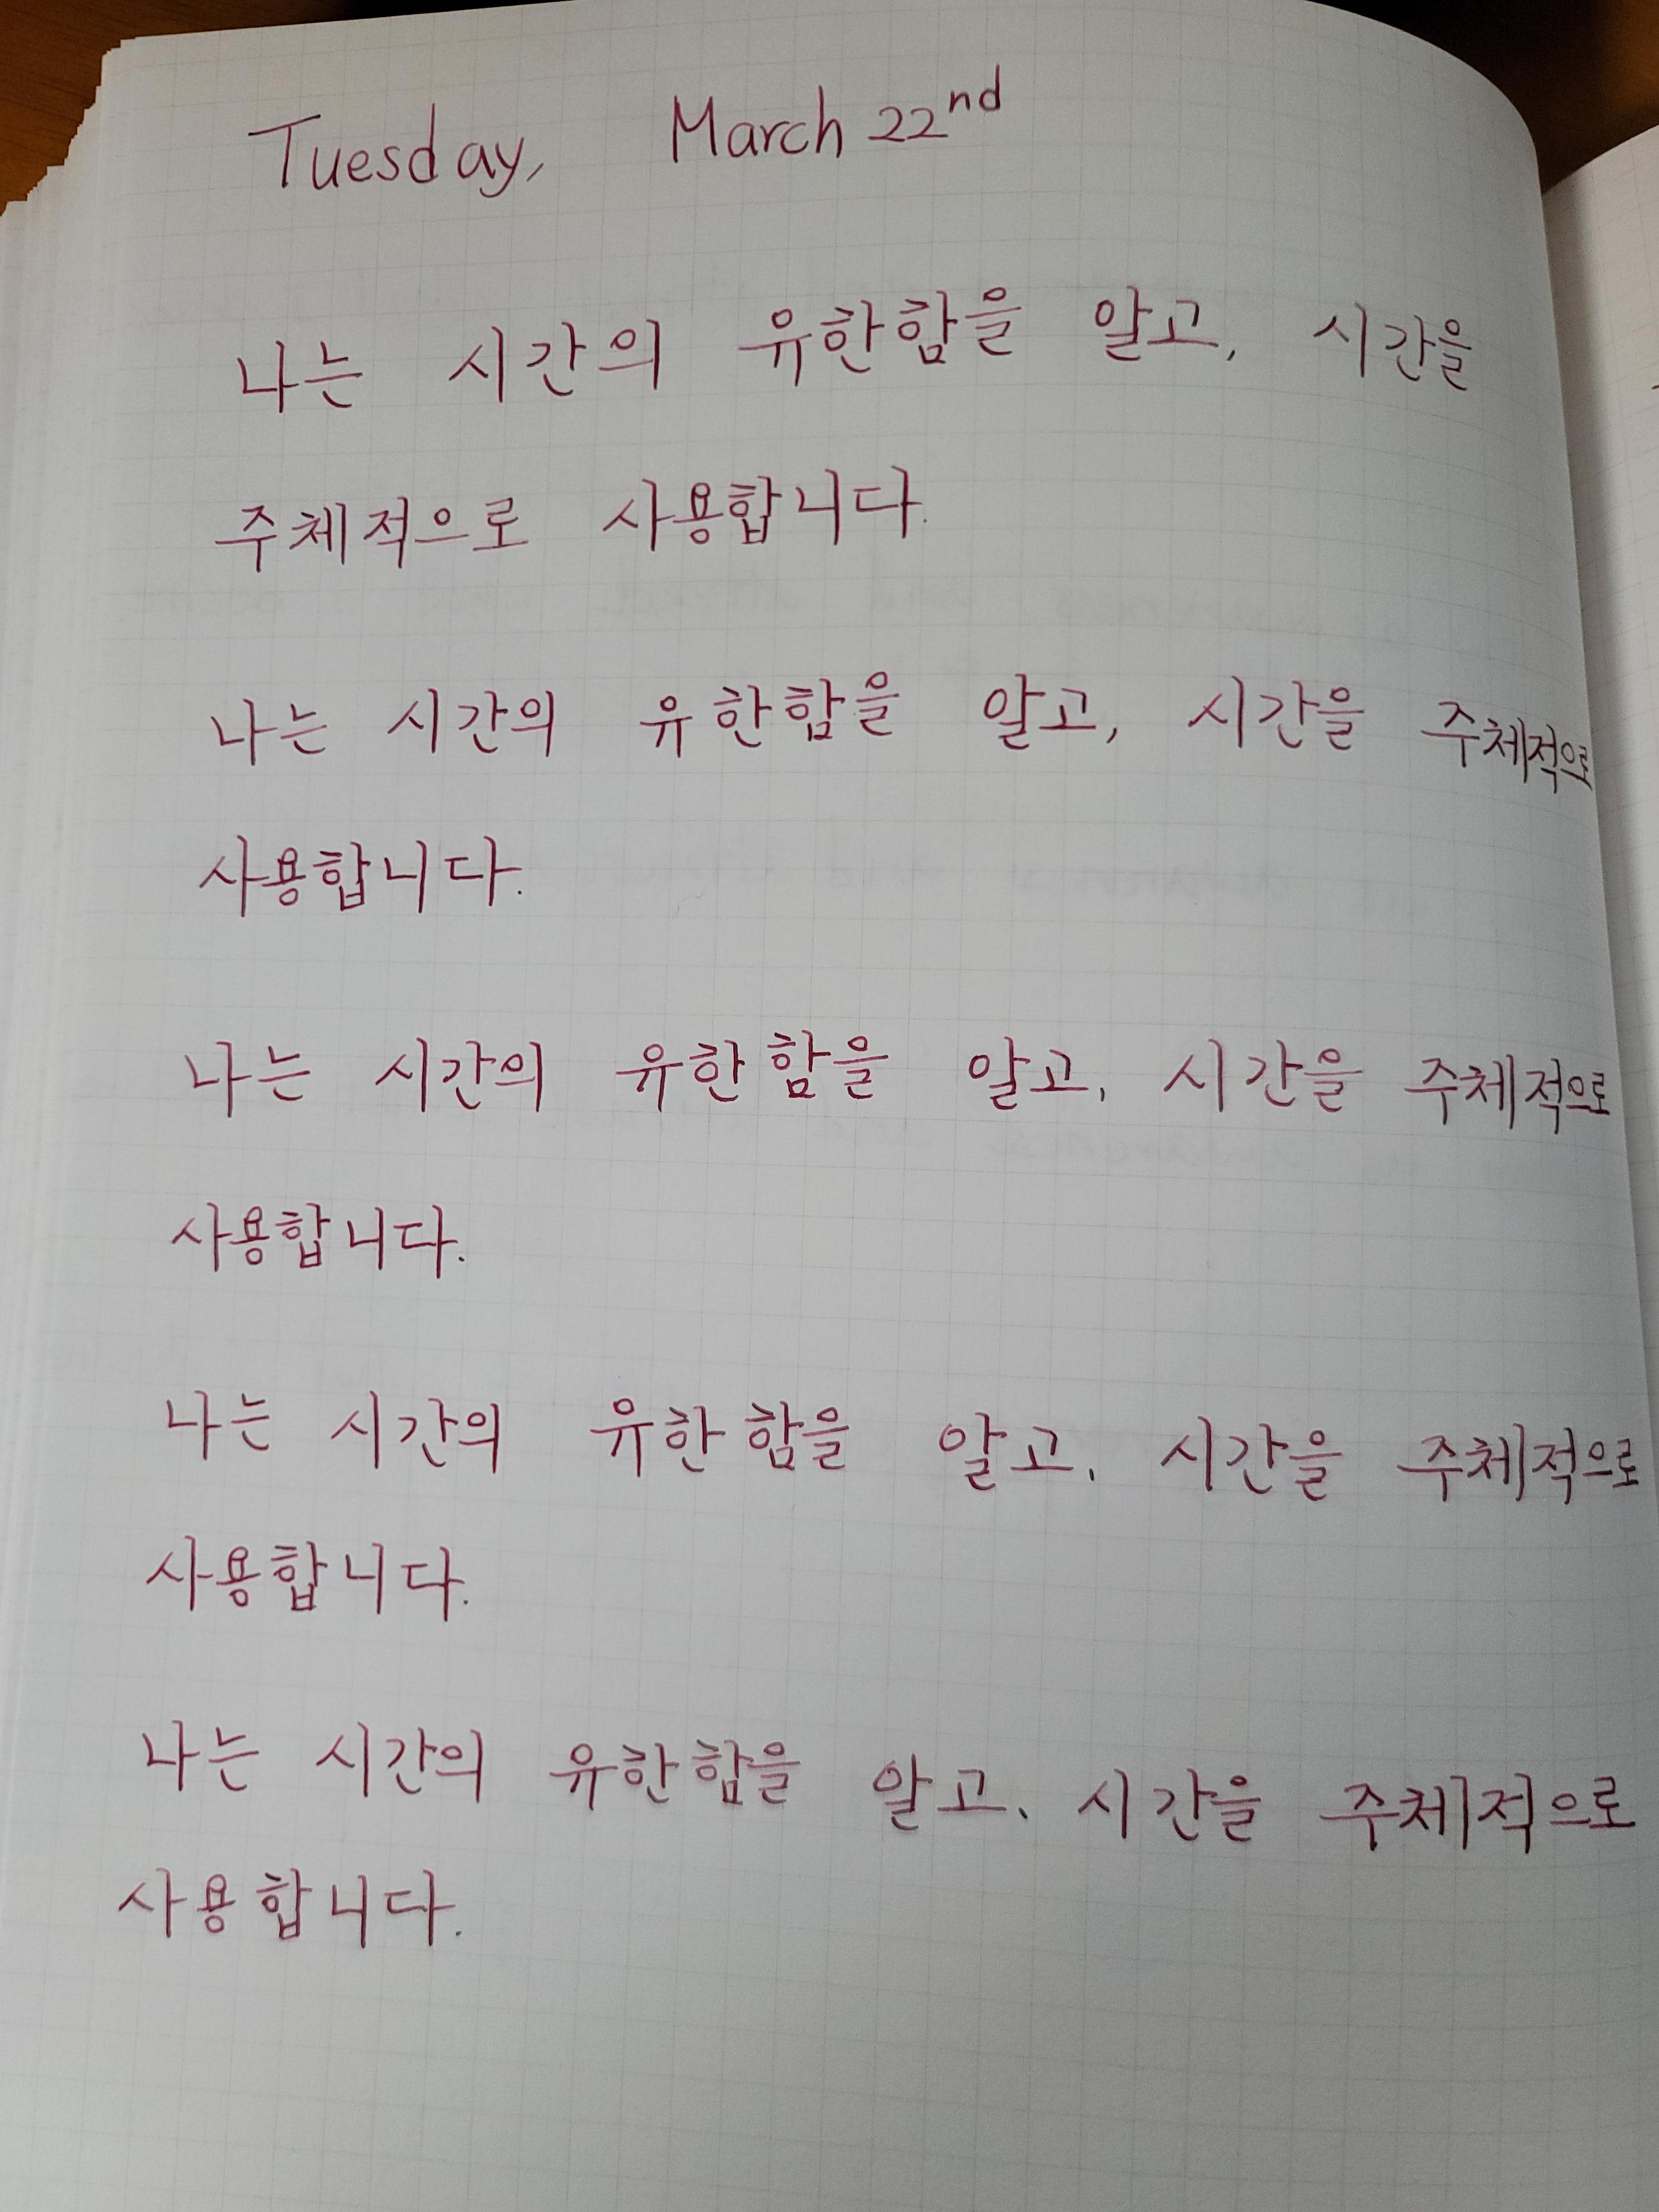 Tuesday, March 22nd
나는 시간의 유한함을 알고, 시간을
주체적으로 사용합니다.
나는 시간의 유한함을 알고, 시간을 주체적으로
사용합니다.
나는 시간의 유한함을 알고, 시간을 주체적으로
사용합니다.
나는 시간의 유한함을 알고, 시간을 주체적으로
사용합니다.
나는 시간의 유한함을 알고, 시간을 주체적으로
사용합니다.